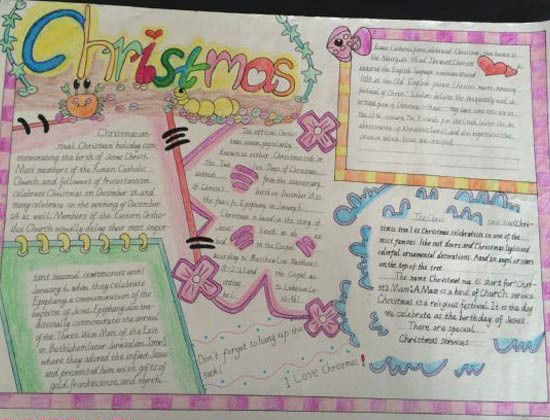 Christmas
Christmas an-
nual Christian holiday com-
memorating the birth of Jesus Christ.
Most members of the Roman Catholic
Church and followers of Protestantism
celebrate Christmas on December 25, and
many celebrate on the evening of December
24 as well. Members of the Eastern Ortho-
dox Church usually delay their most impor
tant seasonal ceremonies until
January 6, when they celebrate
Epiphany, a commemoration of the
baptism of Jesus. Epiphany also tra-
ditionally commemorates the arrival
of the Three Wise Men of the East
in Bethlehem (near Jerusalem, Israel)
where they adored the infant Jesus
and presented him with gifts of
gold, frankincense, and myrrh.
The official Chris-
tmas season, popularly
known as either Christmastide or
the Twelve Days of Christmas,
extends from the anniversary
of Christ's birth on December 25 to
the feast for Epiphany on January 6.
Christmas is based on the story of
Jesus' birth as de
bed in the Gospel
according to Matthew (see Matthew 1:
18-2:12) and the Gospel ac
cording to Luke (see Lu
ke 1:
26-56).
Roman Catholics first celebrated Christmas, then known as
the
the English language sometime around
1050 as the Old English phrase Christes maesse, meaning
"festival of Christ." Scholars believe the frequently used sh
ortened form of Christmas—Xmas—may have come into use in
the 13th century. The X stands for the Greek letter chi, an
abbreviation of Khristos (Christ), and also represents the
cross on which Jesus was crucified.
The Chris
stmas tree is Christmas celebration is one of the
most famous, like out doors and Christmas lights and
colorful ornamental decorations. And an angel or stars
on the top of the tree.
The name Christmas is short for "Chri-
st's Mass". A Mass is a kind of Church service
Christmas is a religious festival. It is the day
we celebrate as the birthday of Jesus.
There are special
Christmas services
Don't forget to hang up the
sock!
I Love Christmas!